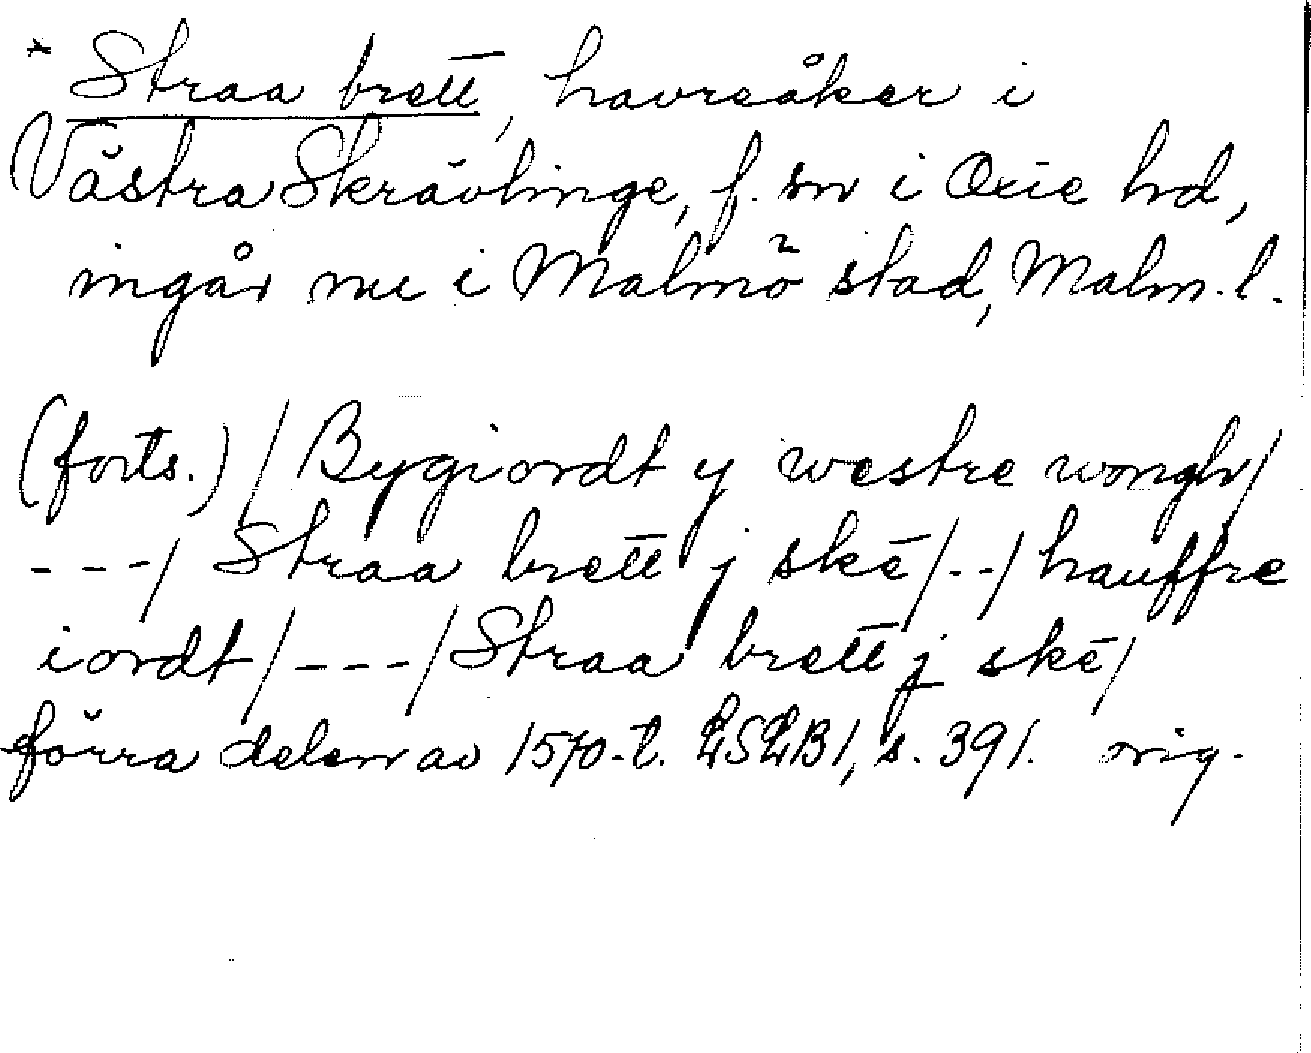 * Straa brett, havreåker i
Västra Skrävlinge, f. sn i Oxie hd,
ingår nu i Malmö stad, Malm. l.
(forts.) / Bygiordt y westre wongh /
---/ Straa brett j ske /--/ hauffre
iordt /---/ Straa brett j ske /
förra delen av 1570-t. LSLB1, s. 391. orig.